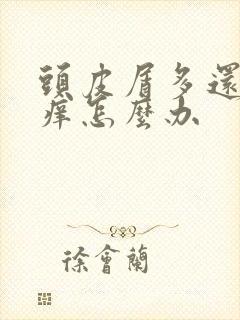 頭皮屑多還
癢怎麼办
徐會蘭